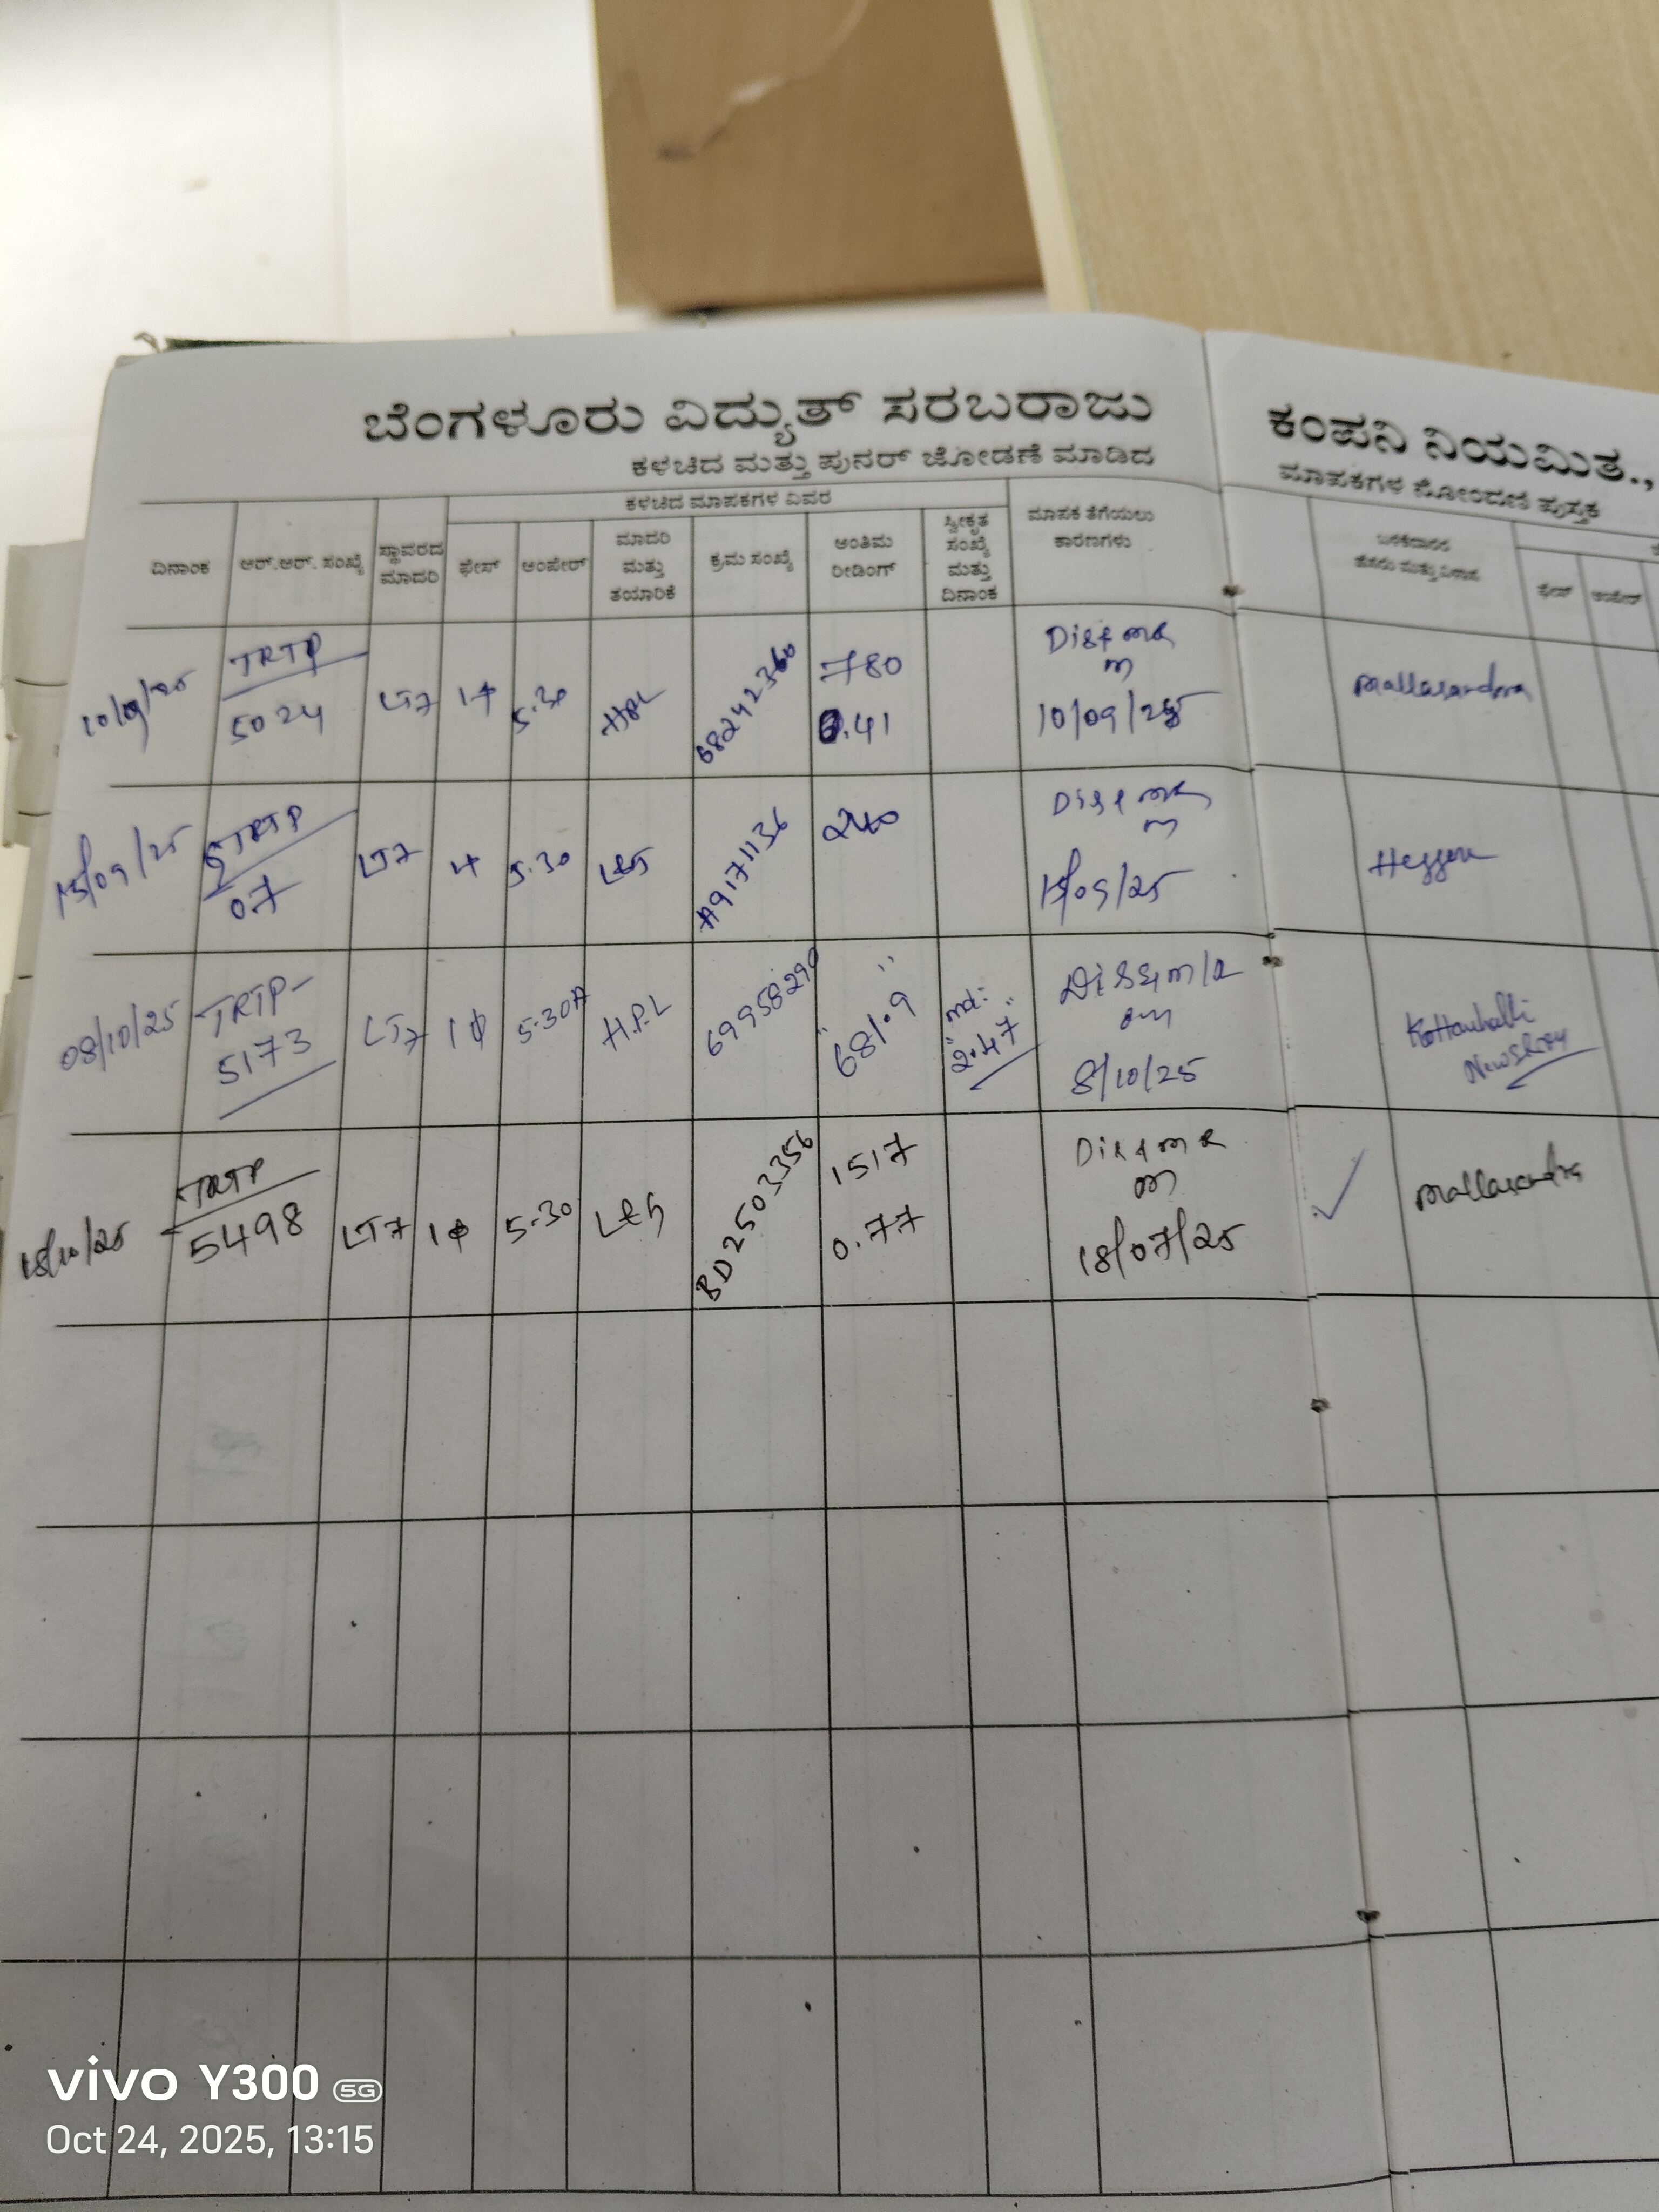 ಬೆಂಗಳೂರು ವಿದ್ಯುತ್ ಸರಬರಾಜು ಕಂಪನಿ ನಿಯಮಿತ.,
ಕಳಚಿದ ಮತ್ತು ಪುನರ್ ಜೋಡಣೆ ಮಾಡಿದ ಮಾಪಕಗಳ ನೋಂದಣಿ ಪುಸ್ತಕ
ಕಳಚಿದ ಮಾಪಕಗಳ ವಿವರ
ದಿನಾಂಕ
ಆರ್.ಆರ್. ಸಂಖ್ಯೆ
ಸ್ಥಾವರದ
ಮಾದರಿ
ಫೇಸ್
ಆಂಪೇರ್
ಮಾದರಿ
ಮತ್ತು
ತಯಾರಿಕೆ
ಕ್ರಮ ಸಂಖ್ಯೆ
ಅಂತಿಮ
ರೀಡಿಂಗ್
ಸ್ವೀಕೃತ
ಸಂಖ್ಯೆ
ಮತ್ತು
ದಿನಾಂಕ
ಮಾಪಕ ತೆಗೆಯಲು
ಕಾರಣಗಳು
ಬಳಕೆದಾರರ
ಹೆಸರು ಮತ್ತು ವಿಳಾಸ
ಫೇಸ್
ಆಂಪೇರ್
10/09/25
TRTP
5024
LT7
5.30
HPL
68242360
780
0.41
10/09/25
Mallasandra
15/09/25
TRTP
07
LT7
5.30
L&G
A9171136
240
15/09/25
08/10/25
TRTP-
5173
LT7
1ϕ
5.30A
H.P.L
69958290
"68/09"
"md:
2.47"
8/10/25
18/10/25
TRTP
5498
LT7
1ϕ
5.30
L&G
BD2503356
1517
0.77
18/07/25
✓
Mallasandra
vivo Y300 5G
Oct 24, 2025, 13:15